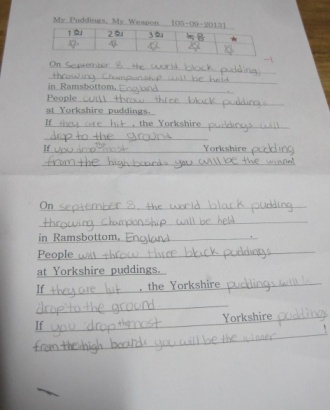 My Puddings, My Weapon [05-09-2013]
1회 2회 3회
On September 8, the world black pudding
throwing Championship will be held
in Ramsbottom, England.
People will throw three black puddings
at Yorkshire puddings.
If they are hit, the Yorkshire puddings will
drop to the ground
If you drop the most Yorkshire pudding
from the high board you will be the winner!
On september 8, the world black pudding
throwing championship will be held
in Ramsbottom, England.
People will throw three black puddings
at Yorkshire puddings.
If they are hit, the Yorkshire puddings will
drop to the ground
If you drop the most Yorkshire puddings
from the high board you will be the winner!